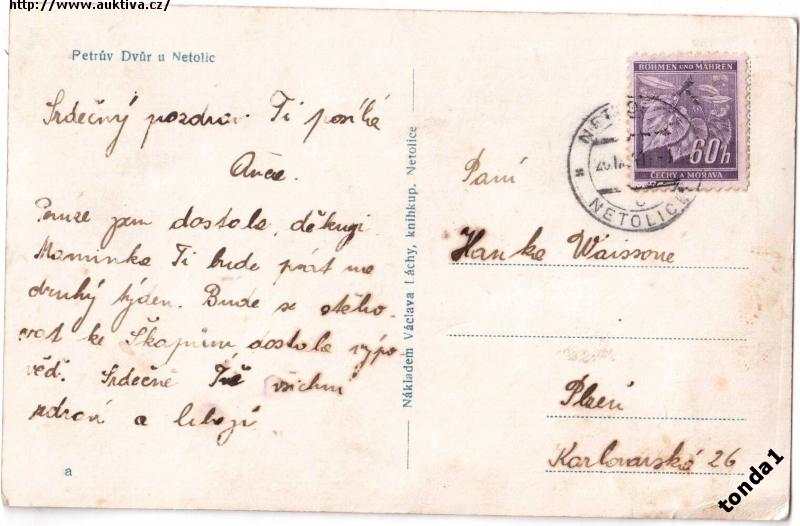 http://www.auktiva.cz/
Petrův Dvůr u Netolic
Srdečný pozdrav Ti posílá
Anče.
Peníze jsem dostala, děkuji
Maminka Ti bude prát na
druhý týden. Bude se stěho-
vat ke Škopům dostala výpo-
věď. Srdečně Tě všichni
zdraví a líbají
a
Nákladem Václava Láchy, knihkup. Netolice
BÖHMEN UND MÄHREN
60h
ČECHY A MORAVA
NETOLICE
Paní
Hanke Waissone
Plzeň
Karlovarská 26
tonda1